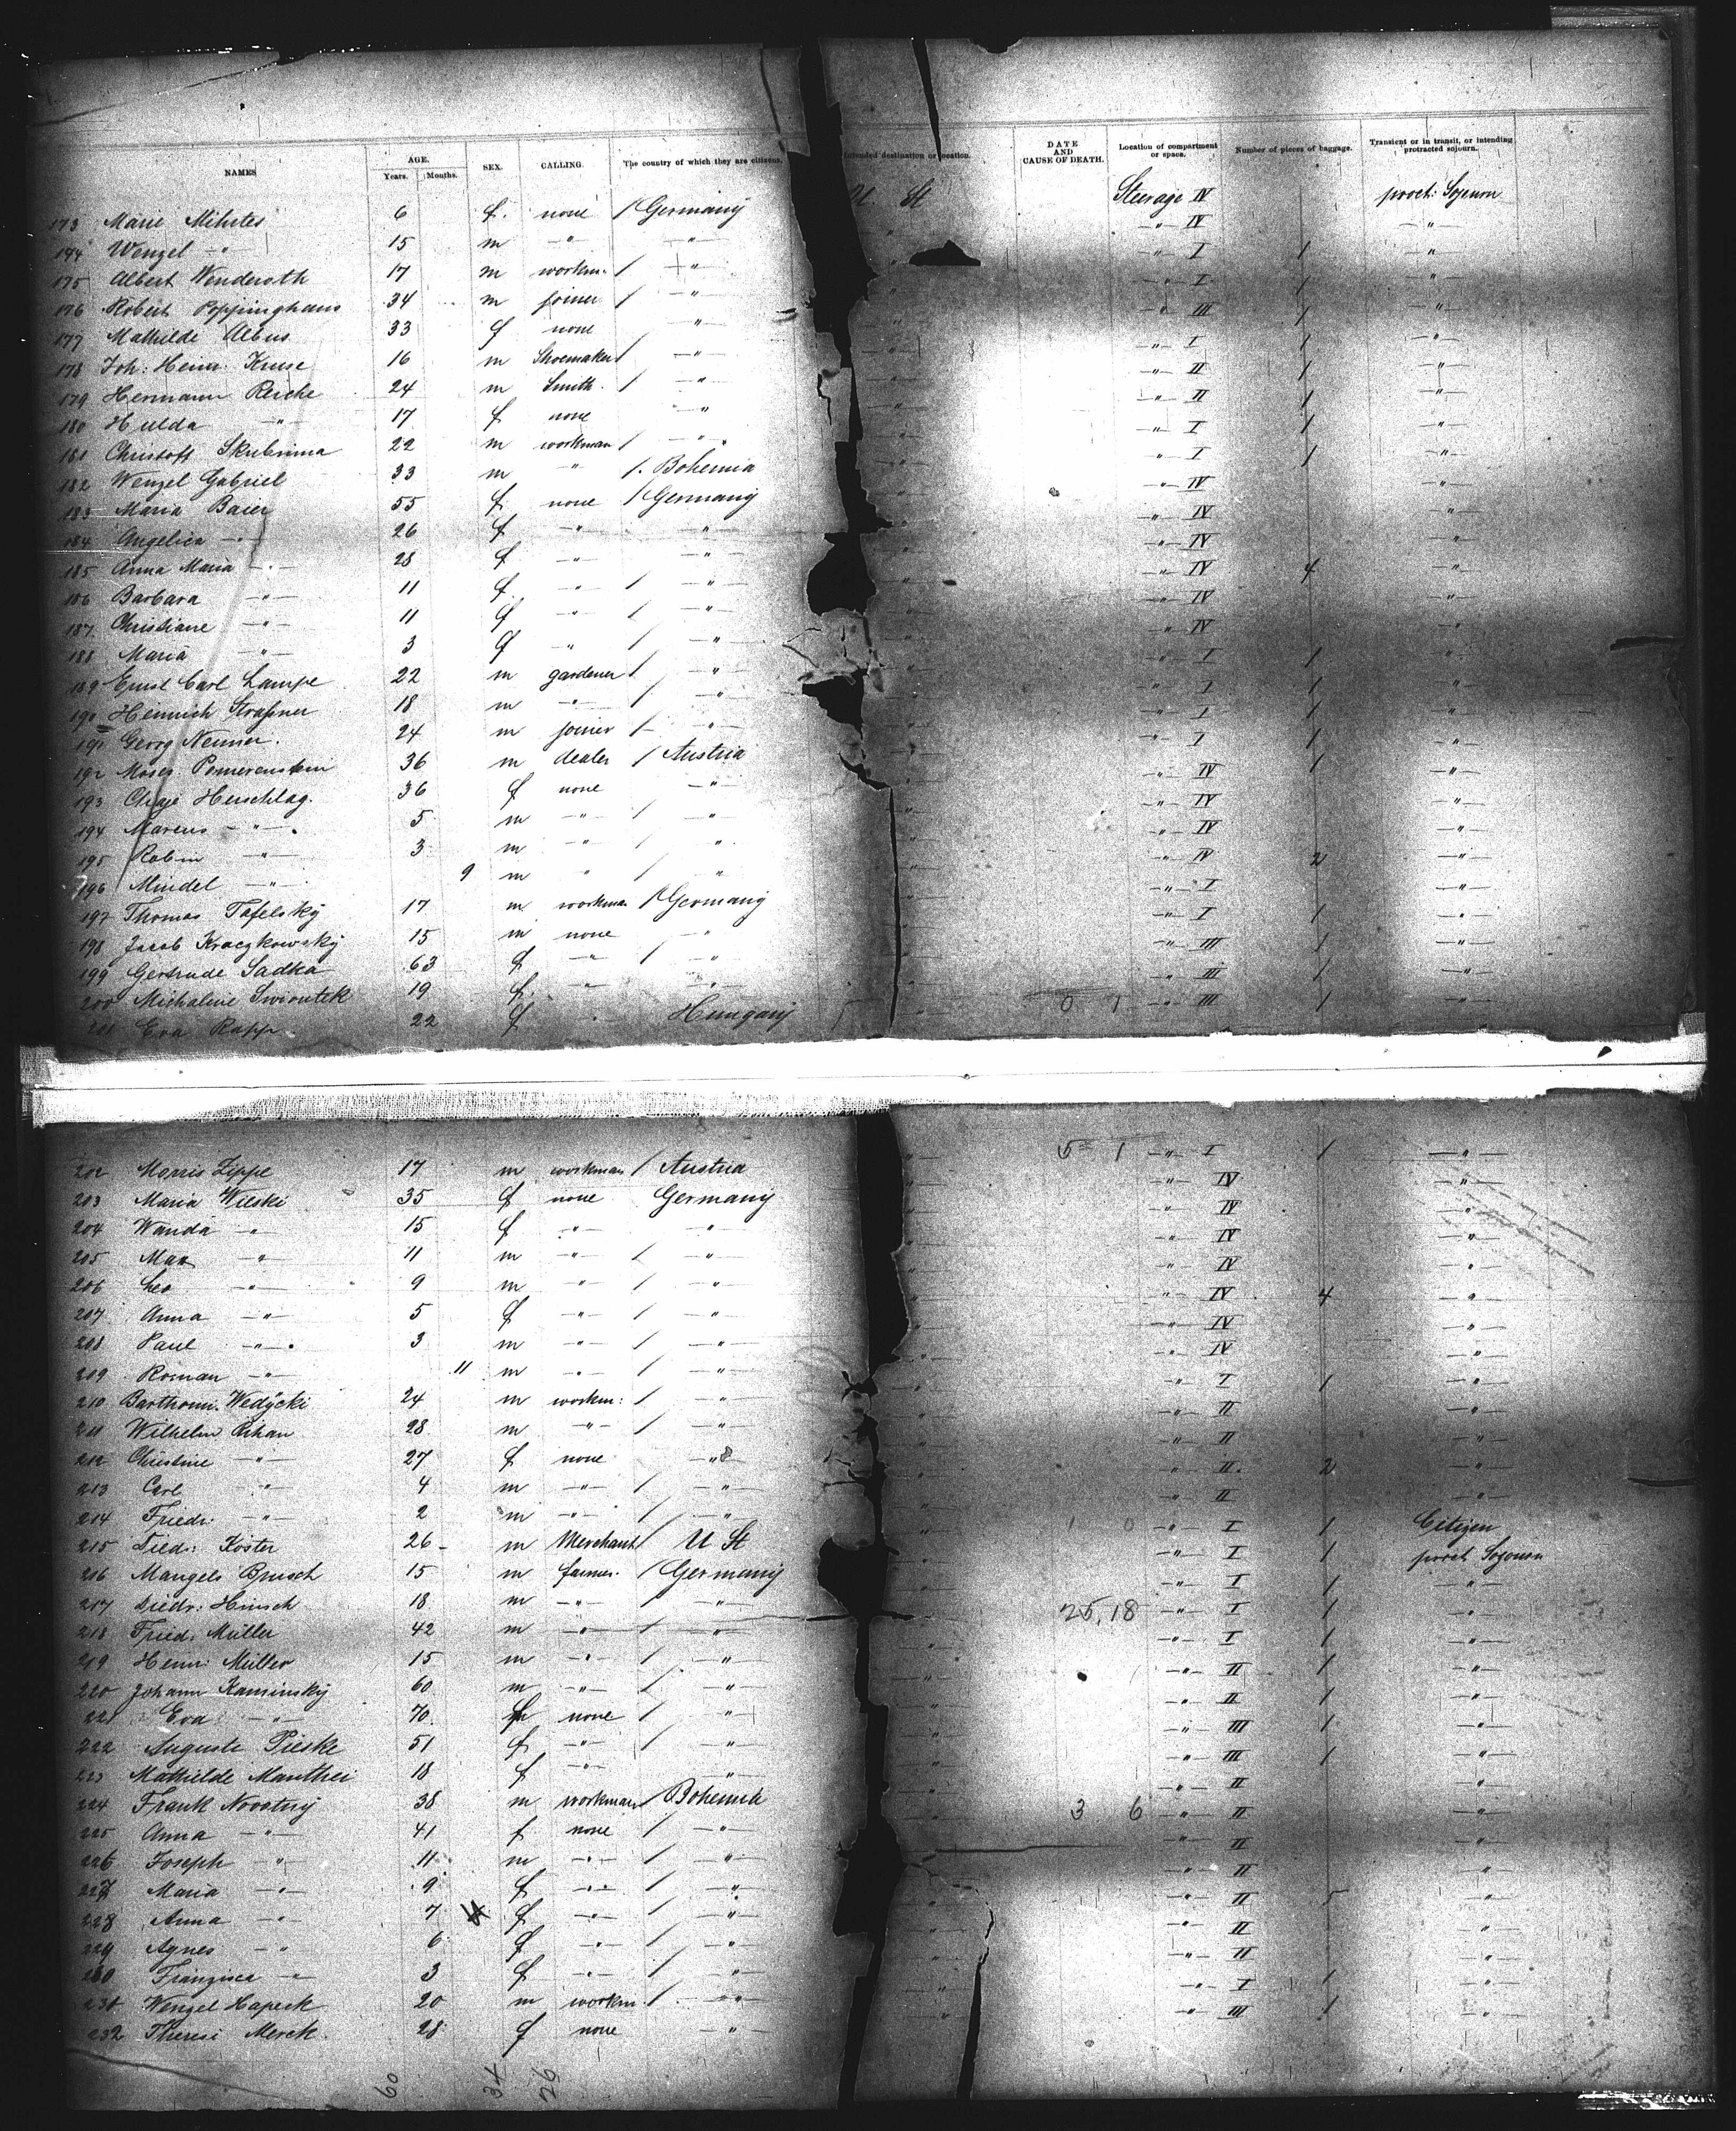 NAMES AGE. Years. Months. SEX. CALLING. The country of which they are citizens. Intended destination or location. DATE AND CAUSE OF DEATH. Location of compartment or space. Number of pieces of baggage. Transient or in transit, or intending protracted sojourn.
173 Marie 6 f. none / Germany U. St Steerage IV prot: Sojourn
174 Wenzel -"- 15 m -"- -"- " -"- IV -"-
175 Albert Wenderoth 17 m workm. / -"- " -"- I 1 -"-
176 Robert Poppinghaus 34 m joiner / -"- " -"- I 1 "
177 Mathilde Albus 33 f none -"- " -"- III 1 -"-
178 Joh: Heinr: Kruse 16 m Shoemaker / -"- " -"- I 1 -"-
179 Hermann Reiche 24 m Smith. / -"- " -"- II 1 -"-
180 Hulda -"- 17 f none -"- " -"- II 1 -"-
181 Christoff 22 m workman / -"- " -"- I 1 -"-
182 Wenzel Gabriel 33 m -"- /. Bohemia " -"- I 1 -"-
183 Maria Baier 55 f none / Germany " -"- IV -"-
184 Angelica -"- 26 f -"- -"- " -"- IV -"-
185 Anna Maria -"- 28 f -"- -"- " -"- IV -"-
186 Barbara -"- 11 f. -"- / -"- " -"- IV 4 -"-
187 Christiane -"- 11 f -"- / -"- " -"- IV -"-
188 Maria -"- 3 f -"- / -"- " -"- IV -"-
189 Ernst Carl Lampe 22 m gardener / -"- " -"- I 1 "
190 Heinrich Straßner 18 m -"- / -"- " -"- I 1 "
191 Georg Neuner. 24 m joiner / -"- " -"- I 1 "
192 Moses Pomerenstein 36 m dealer / Austria " -"- I 1 "
193 Chaje Herschlag. 36 f none -"- " -"- IV -"-
194 Marcus -"- 5 m -"- / -"- " -"- IV -"-
195 Robin -"- 3 m -"- / " " -"- IV -"-
196 Mindel -"- 9 m " / " " -"- IV 2 -"-
197 Thomas Tafelsky 17 m workman / Germany " -"- I 1 -"-
198 Jacob Kraczkowsky 15 m none -"- " -"- I 1 -"-
199 Gertrude Sadka 63 f -"- / -"- " -"- III 1 -"-
200 Michaline Swiontek 19 f. -"- -"- " -"- III 1 -"-
201 Eva Rapp. 22 f " Hungary " 0 1 -"- III 1 -"-
202 Morris Zippe 17 m workman / Austria " 5 1 -"- I 1 -"-
203 Maria Wieski 35 f none Germany " -"- IV -"-
204 Wanda -"- 15 f -"- -"- " -"- IV "
205 Max -"- 11 m -"- / -"- " -"- IV -"-
206 Leo -"- 9 m -"- / -"- " -"- IV -"-
207 Anna -"- 5 f -"- / -"- " -"- IV 4 -"-
208 Paul -"- 3 m -"- / -"- " -"- IV -"-
209 Roman -"- 11 m -"- / -"- " -"- IV -"-
210 Barthom. Wedycki 24 m workm: / -"- " -"- I 1 -"-
211 Wilhelm 28 m -"- / -"- " -"- II -"-
212 Christine -"- 27 f none -"- " -"- II -"-
213 Carl -"- 4 m -"- / -"- " -"- II. 2 -"-
214 Friedr: -"- 2 m -"- / -"- " -"- II -"-
215 Died: Köster 26 - m Merchant / U St " 1 0 -"- I 1 Citizen
216 Mangels Brusch 15 m farmer. / Germany " -"- I 1 prot Sojourn
217 Diedr: Hinsch 18 m -"- / -"- " -"- I 1 -"-
218 Fried: Müller 42 m -"- / -"- " 25,18 -"- I 1 "
219 Heinr: Müller 15 m -"- / -"- " -"- I 1 -"-
220 Johann Kaminsky 60 m -"- / -"- " -"- II 1 -"-
221 Eva -"- 70 f none / -"- " -"- II 1 -"-
222 Auguste Pieske 51 f -"- / -"- " -"- III 1 -"-
223 Mathielde Manthei 18 f -"- -"- " -"- III 1 -"-
224 Frank Novotny 38 m workman / Bohemia " -"- II "
225 Anna -"- 41 f none / -"- " 3 6 -"- II -"-
226 Joseph -"- 11 m -"- / -"- " -"- II -"-
227 Maria -"- 9 f -"- / -"- " -"- II "
228 Anna -"- 7 f -"- / -"- " -"- II 5 -"-
229 Agnes -"- 6 f -"- / -"- " -"- II -"-
230 Franzisca -"- 3 f -"- / -"- " -"- II -"-
231 Wenzel Hapeck 20 m workm. / -"- " -"- I 1 -"-
232 Therese Merck. 28 f none -"- " -"- III 1 -"-
60 34 26